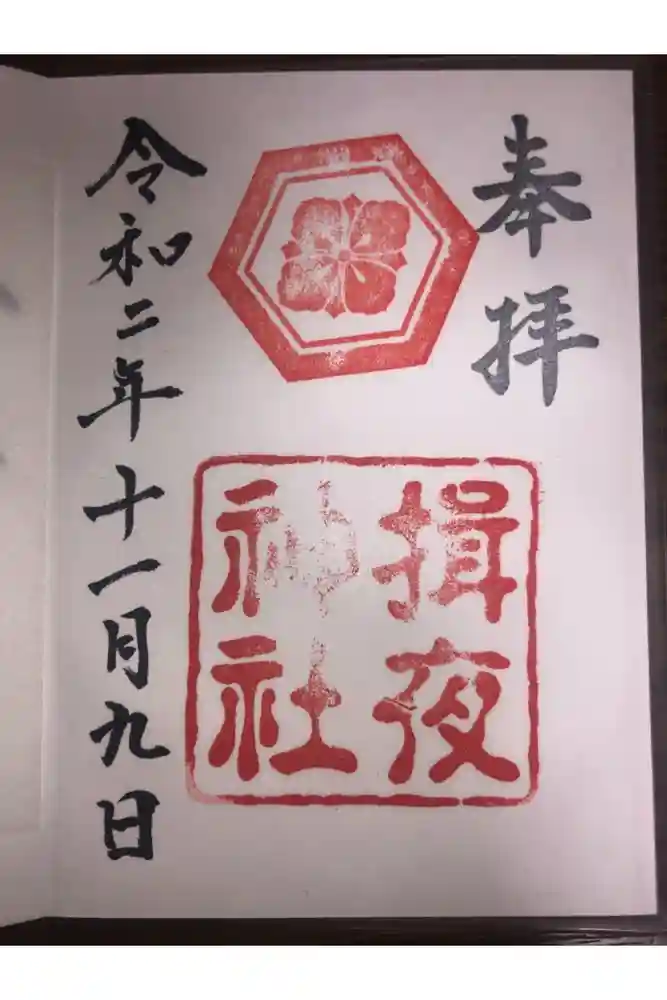 奉拝
揖夜
神社
令和二年十一月九日